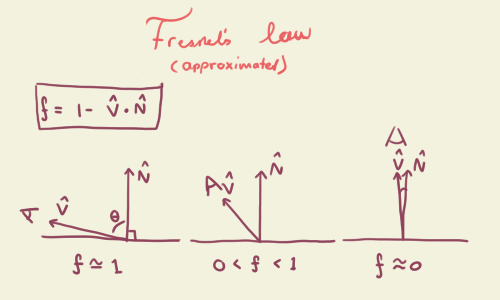 Fresnel's law
(approximated)
f = 1 - V̂ · N̂
V̂ θ N̂
f ≃ 1
V̂ N̂
0 < f < 1
V̂ N̂
f ≈ 0